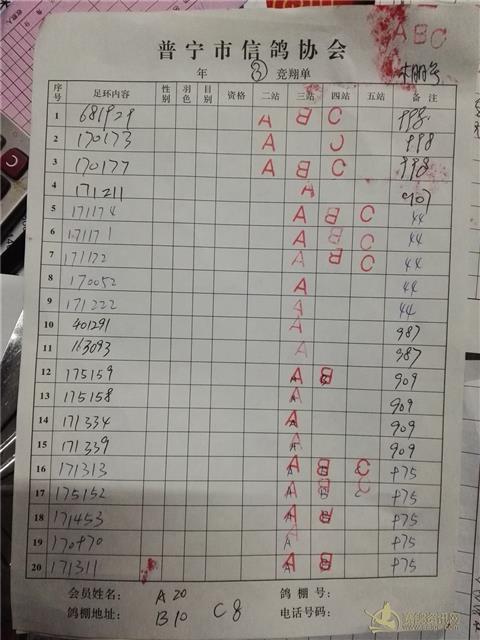 ABC
普宁市信鸽协会
年 ③ 竞翔单
序号 足环内容 性别 羽色 目别 资格 二站 三站 四站 五站 备注
1 681929 A B C 998
2 170173 A C 998
3 170177 A B C 998
4 171211 A 907
5 171174 A B C 44
6 171171 A B C 44
7 171172 A B C 44
8 170052 A 44
9 171222 A 44
10 401291 A 987
11 163093 A 987
12 175159 A B 909
13 175158 A 909
14 171334 A 909
15 171339 A 909
16 171313 A B C 875
17 175152 A B C 875
18 171453 A B 875
19 170870 A 875
20 171311 A B 875
会员姓名: A 20 鸽棚号:
鸽棚地址: B 10 C 8 电话号码: